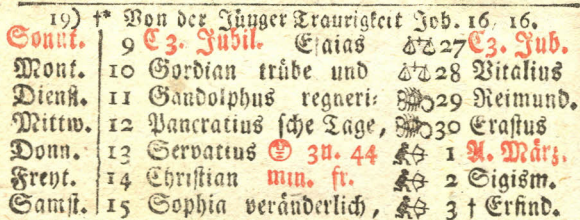 19) †* Von der Jünger Traurigkeit Joh. 16, 16.
Sonnt. 9 C3. Jubil. Esaias 27 C3. Jub.
Mont. 10 Gordian trübe und 28 Vitalius
Dienst. 11 Gandolphus regneri= 29 Reimund.
Mittw. 12 Pancratius sche Tage, 30 Erastus
Donn. 13 Servatius 3u. 44 1 A. März.
Freyt. 14 Christian min. fr. 2 Sigism.
Samst. 15 Sophia veränderlich, 3 † Erfind.